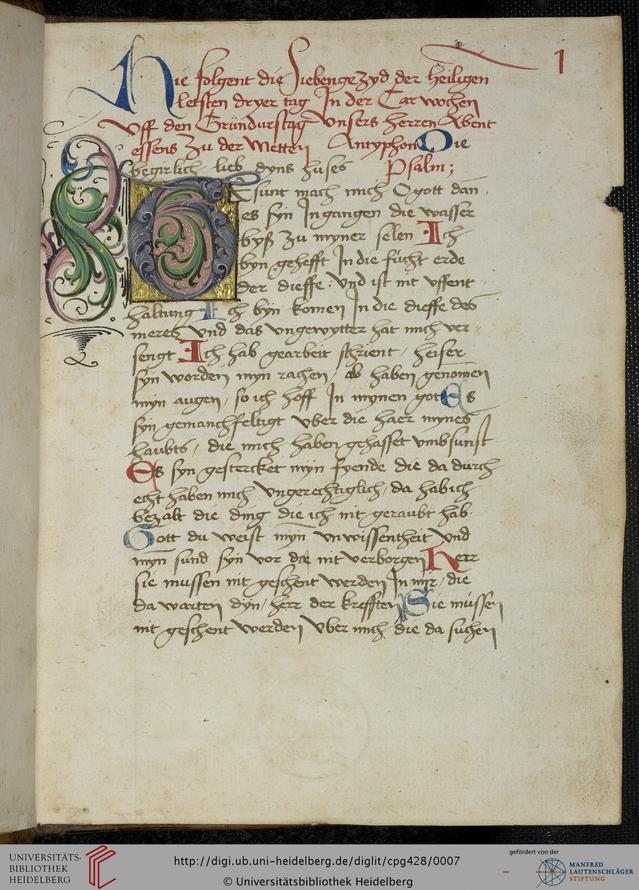 1
Hie folgent die Siebengezyd der heiligen
letsten dryer tag In der Car wochen
Vff den Gründurstag Vnsers herren Abent
essens Zu der Metten Antyphon Die
begirlich lieb dyns huses Psalm;
O sunt mach mich O gott dan
es syn Ingangen die wasser
byß zu myner selen Ich
byn gehefft In die fücht erde
der dieffe / Vnd ist nit vffent
haltung Ich byn komen In die dieffe des
meres / Vnd das vngewytter hat mich ver
sengt Ich hab gearbeit schrient / heiser
syn worden myn rachen / ab haben genomen
myn augen / so ich hoff In mynen gott Es
syn gemanchfeltigt vber die haer mynes
haubts / die mich haben gehasset vmb sunst
Es syn gestercket myn fyende die da durch
echt haben mich vngerechtiglich / da hab ich
bezalt die ding die ich nit geraubt hab
Gott du weist myn vnwissentheit vnd
myn sund syn vor dir nit verborgen Herr
sie mussen nit geschent werden In mir / die
da warten dyn / herr der krefften Sie müssen
nit geschent werden vber mich die da suchen
UNIVERSITÄTS-
BIBLIOTHEK
HEIDELBERG
http://digi.ub.uni-heidelberg.de/diglit/cpg428/0007
© Universitätsbibliothek Heidelberg
gefördert von der
MANFRED
LAUTENSCHLÄGER
STIFTUNG